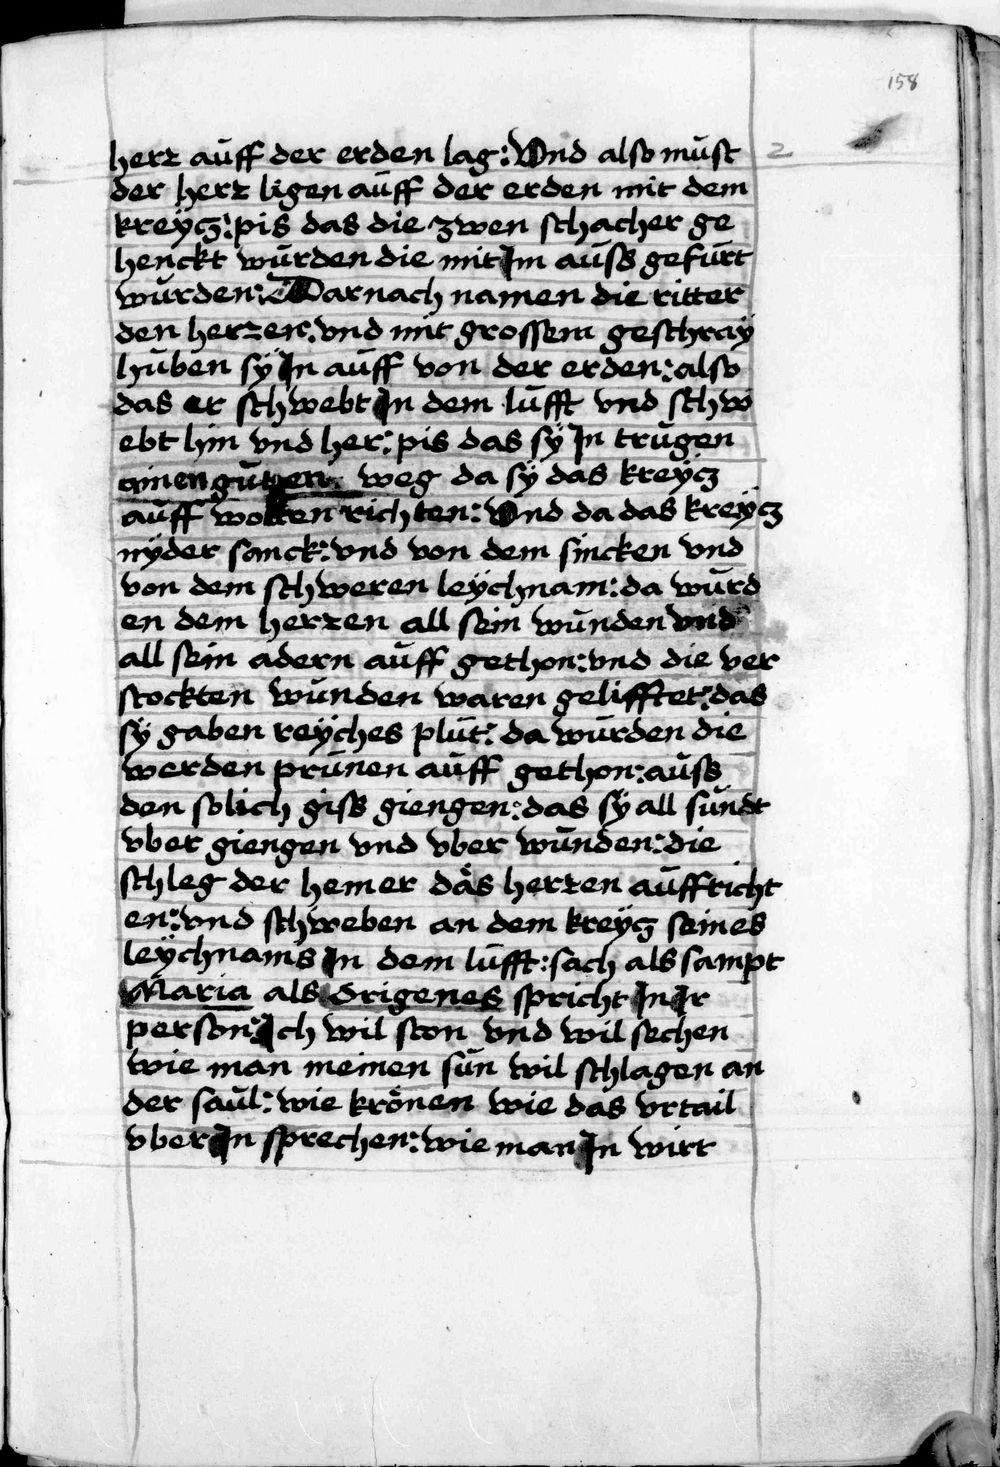 158
herr aūff der erden lag: Vnd also mūst 2
der herr ligen aūff der erden mit dem
kreÿcz: pis das die zwen schacher ge
henckt wūrden die mit Im aūss gefūrt
wūrden: Darnach namen die ritter
den herren: vnd mit grossem geschraÿ
hūben sÿ In aūff von der erden: also
das er schwebt In dem lūfft vnd schw
ebt hin vnd her: pis das sÿ In trūgen
ainen gūtzen weg da sÿ das kreÿcz
aūff wolten richten: Vnd da das kreÿcz
nÿder sanck: vnd von dem sincken vnd
von dem schweren leÿchnam: da wūrd
en dem herren all sein wūnden vnd
all sein adern aūff gethon: vnd die ver
stockten wūnden waren gelifftet: das
sÿ gaben reÿches plūt: da wūrden die
werden prūnen aūff gethon: aūss
den solich giss giengen: das sÿ all sūndt
vber giengen vnd vber wūnden: die
schleg der hemer däs herren aūffricht
en: vnd schweben an dem kreÿcz seines
leÿchnams In dem lūfft: sach als sampt
Maria als Origenes spricht In Ir
person: Ich wil ston vnd wil sechen
wie man meinen sūn wil schlagen an
der saūl: wie krönen wie das vrtail
vber In sprechen: wie man In wirt